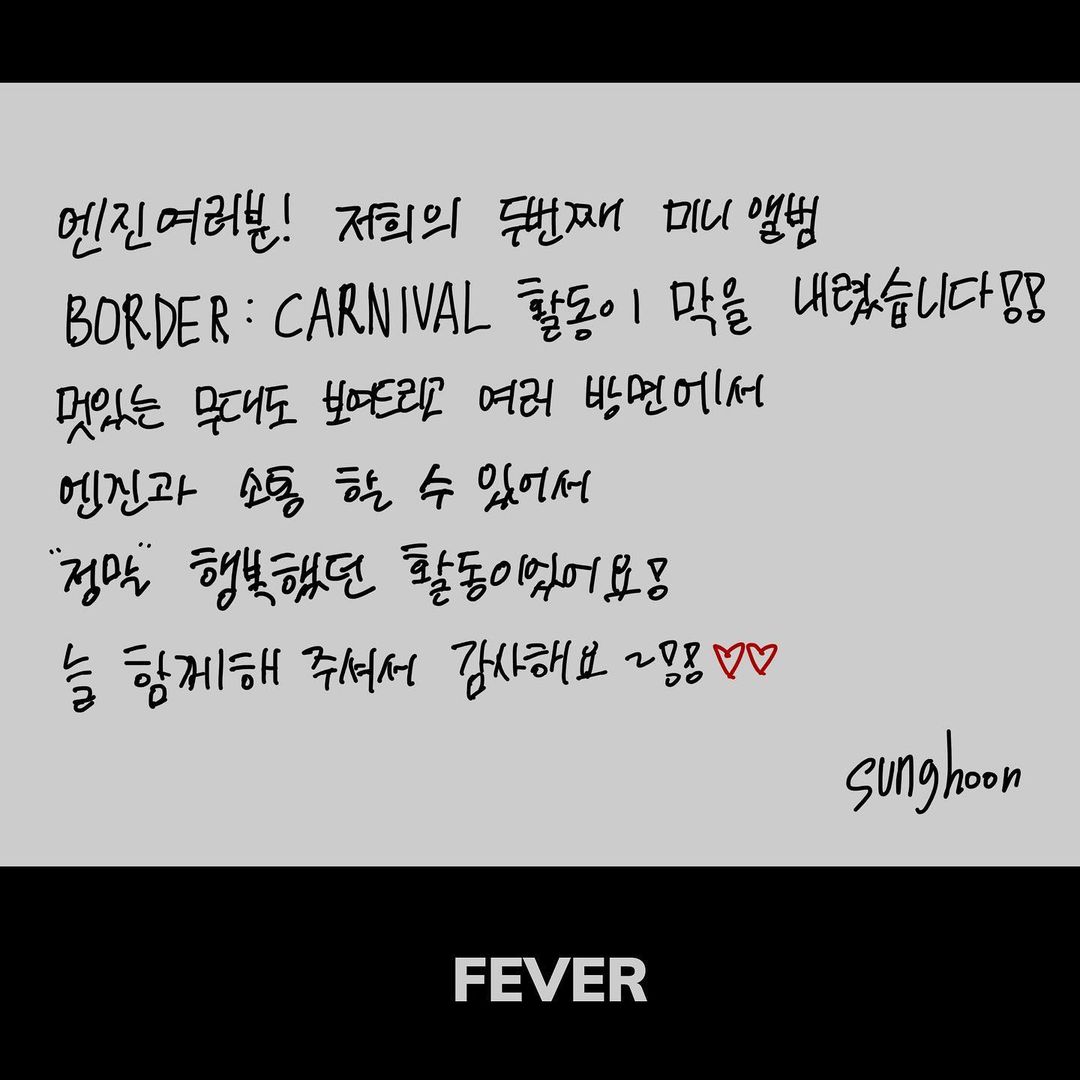 엔진여러분! 저희의 두번째 미니앨범
BORDER : CARNIVAL 활동이 막을 내렸습니다!!
멋있는 무대도 보여드리고 여러 방면에서
엔진과 소통 할 수 있어서
"정말" 행복했던 활동이었어요!
늘 함께해 주셔서 감사해요~!!♡♡
sunghoon
FEVER